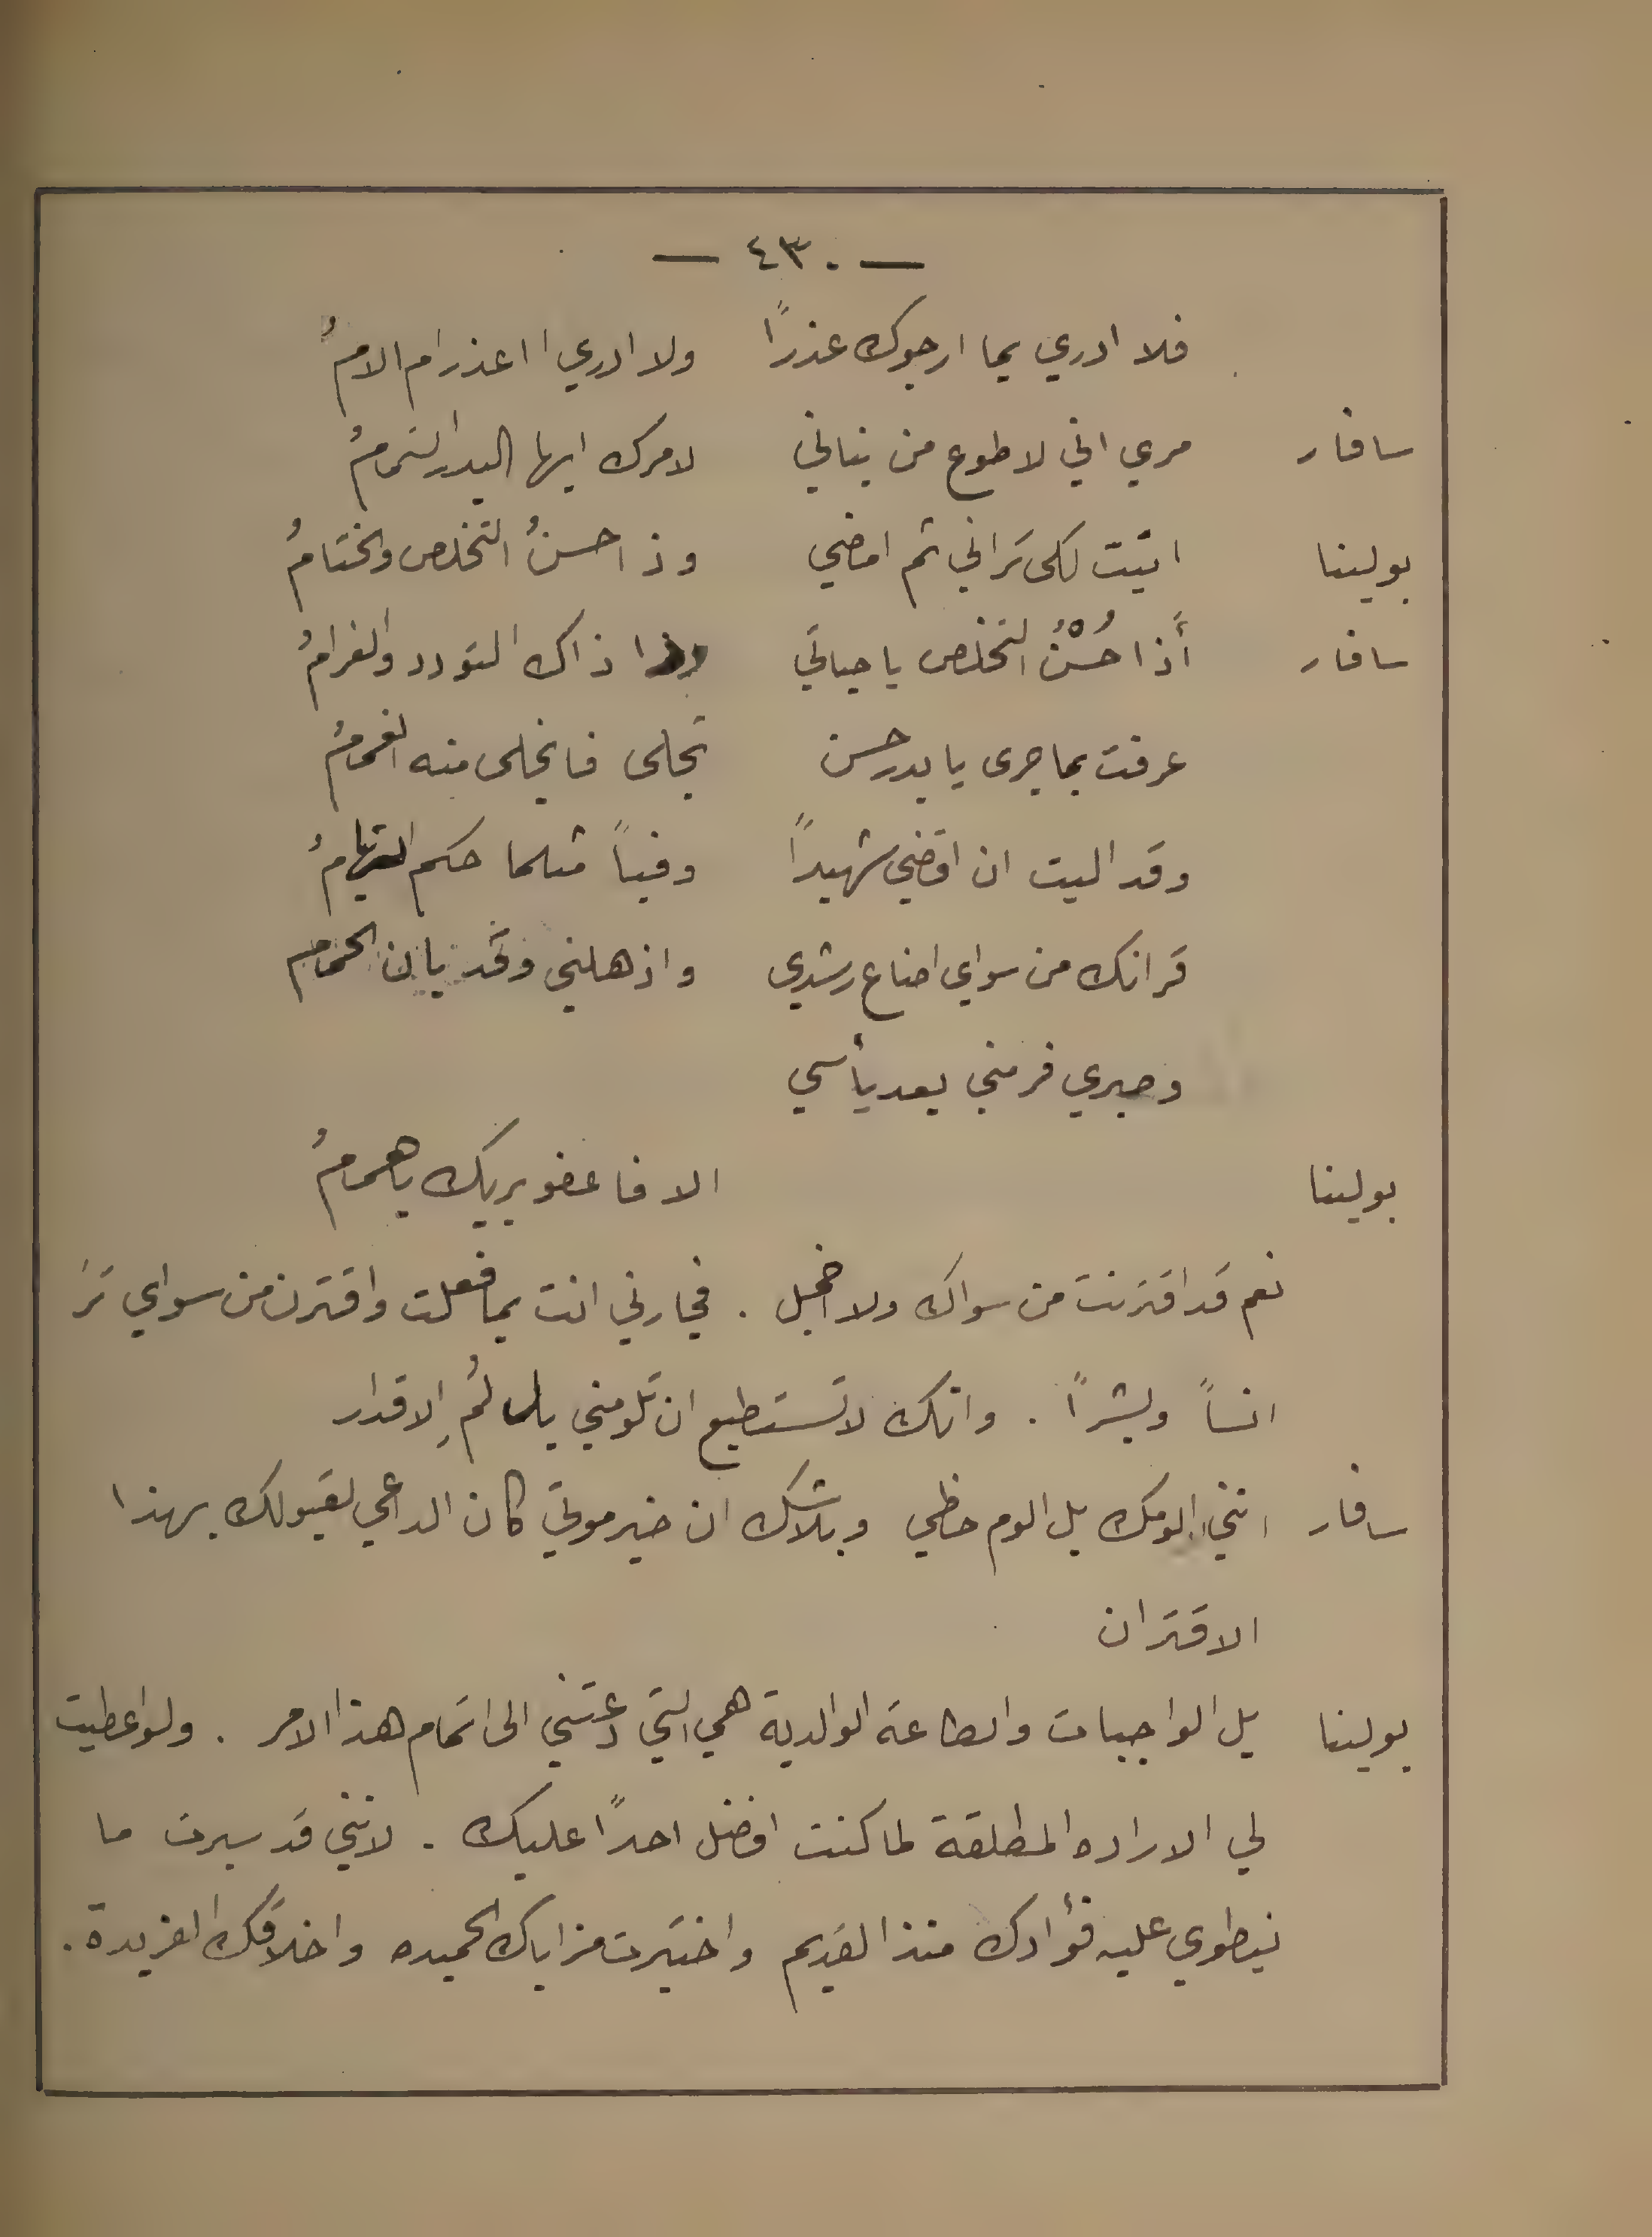 — ٤٣٠ —
فلا ادري بما ارجوك عذرًا ولا ادري ااعذر ام الامُ
سافار مري اني لاطوع من بناني لامرك ايها البدر التمامُ
بولينا اتيت لكى تراني ثم امضي وذا حسنُ التخلص والختامُ
سافار أَذا حُسْنُ التخلص يا حياتي ذاك التودد والغرامُ
عرفت بما جرى يا بدر حسن تجلى فانجلى منه الغمامُ
وقد اليت ان اقضي شهيداً وفياً مثلما حكم
قرانك من سواي اضاع رشدي واذهلني وقد بان الحمام
وصبري فر مني بعد يأسي
بولينا الا فاعفو بربك يا همامُ
نعم قد اقترنت من سواك ولا اخجل . فجارني انت بما فعلت واقترن من سواي ترَ
انساً وبشراً . وانك لا تستطيع ان تلومني بل لُمِ الاقدار
سافار انني الومك بل الوم حظي وبلاشك ان خبر موتي كان الداعي لقبولك بهذا
الاقتران
بولينا بل الواجبات والطاعة الوالدية هي التي دعتني الى اتمام هذا الامر . ولو اعطيت
لي الاراده المطلقة لما كنت افضل احداً عليك . لانني قد سبرت ما
ينطوي عليه فؤادك منذ القديم واختبرت مزاياك الحميده واخلاقك الفريدة .